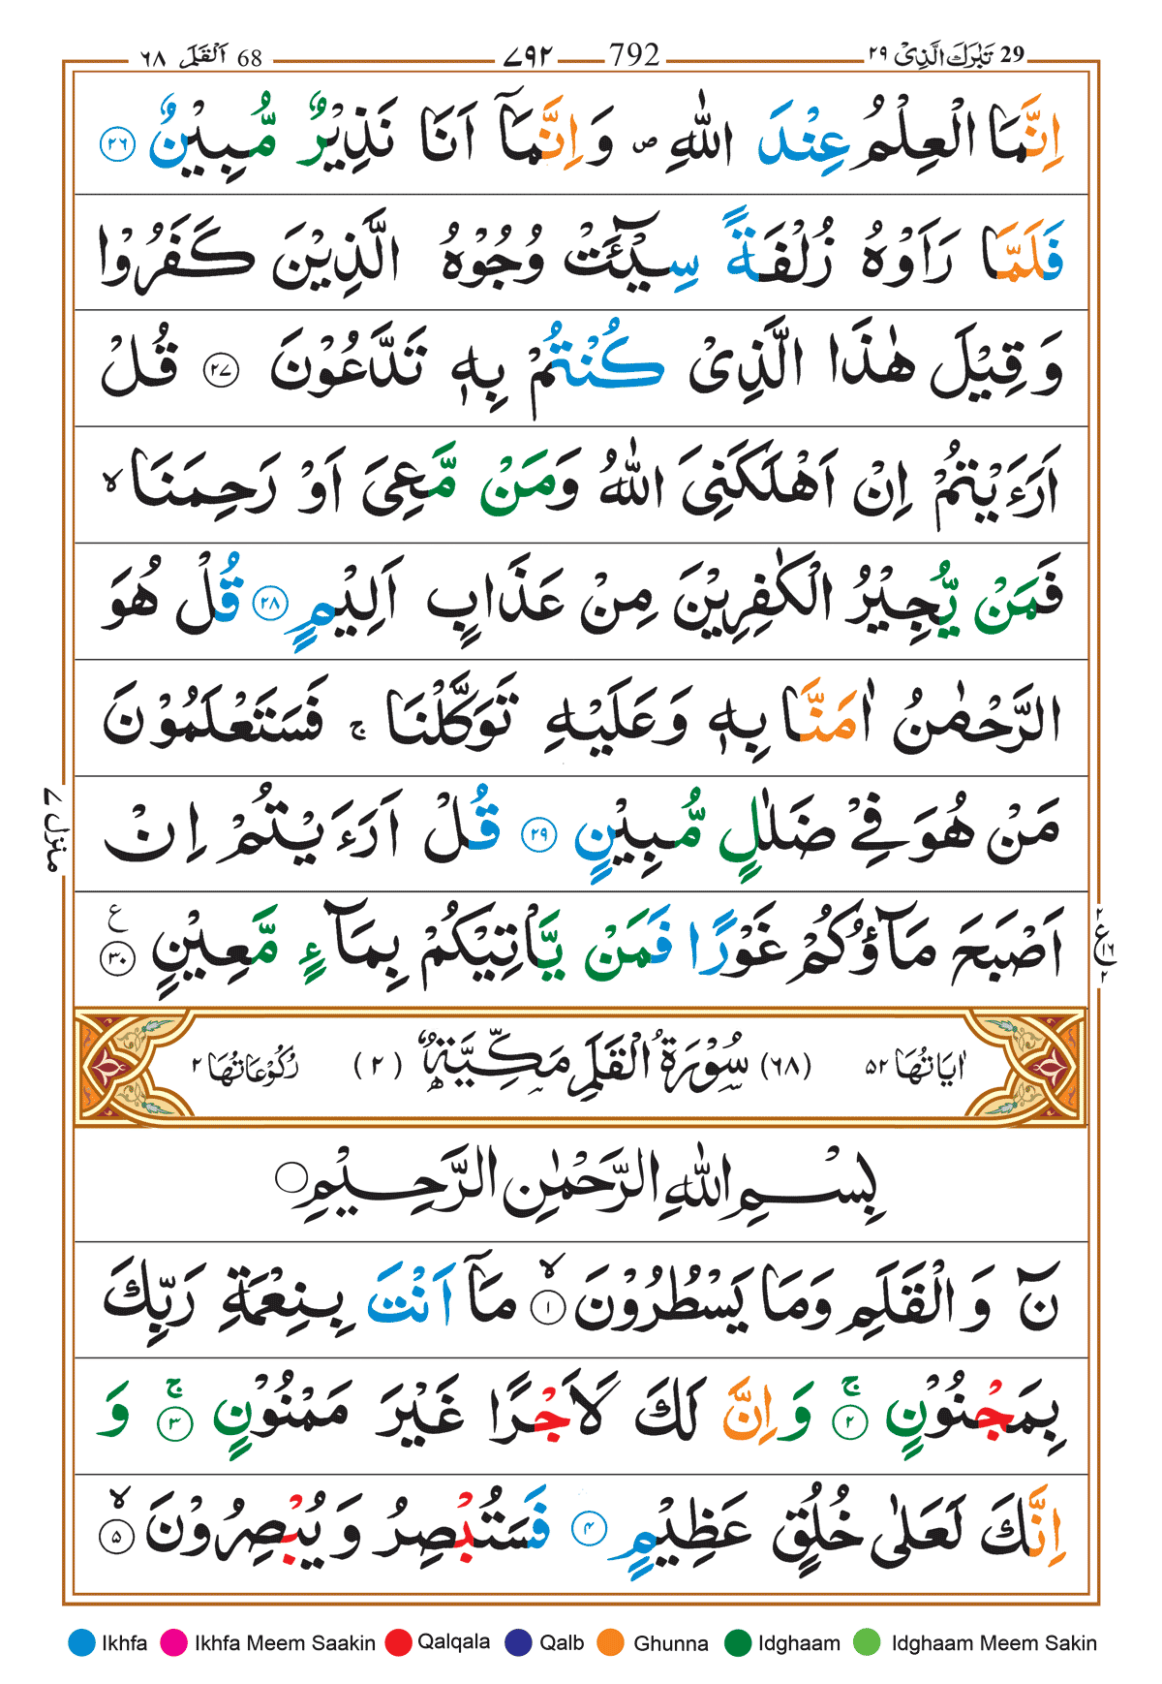 29 تَبٰرَكَ الَّذِیْ ٢٩ 792 ٧٩٢ 68 اَلْقَلَم ٦٨
اِنَّمَا الْعِلْمُ عِنْدَ اللّٰهِ ۪ وَاِنَّمَاۤ اَنَا نَذِیْرٌ مُّبِیْنٌ ٢٦
فَلَمَّا رَاَوْهُ زُلْفَةً سِیْٓـَٔتْ وُجُوْهُ الَّذِیْنَ كَفَرُوْا
وَقِیْلَ هٰذَا الَّذِیْ كُنْتُمْ بِهٖ تَدَّعُوْنَ ٢٧ قُلْ
اَرَءَیْتُمْ اِنْ اَهْلَكَنِیَ اللّٰهُ وَمَنْ مَّعِیَ اَوْ رَحِمَنَا ۙ
فَمَنْ یُّجِیْرُ الْكٰفِرِیْنَ مِنْ عَذَابٍ اَلِیْمٍ ٢٨ قُلْ هُوَ
الرَّحْمٰنُ اٰمَنَّا بِهٖ وَعَلَیْهِ تَوَكَّلْنَا ۚ فَسَتَعْلَمُوْنَ
مَنْ هُوَ فِیْ ضَلٰلٍ مُّبِیْنٍ ٢٩ قُلْ اَرَءَیْتُمْ اِنْ
اَصْبَحَ مَآؤُكُمْ غَوْرًا فَمَنْ یَّاْتِیْكُمْ بِمَآءٍ مَّعِیْنٍ ٣٠ ع
منزل ٧
ع ٢ ١٦ ٢
اٰیَاتُهَا ٥٢ (٦٨) سُوْرَةُ الْقَلَمِ مَكِّیَّةٌ (٢) رُكُوْعَاتُهَا ٢
بِسْمِ اللّٰهِ الرَّحْمٰنِ الرَّحِیْمِ
نٓ وَالْقَلَمِ وَمَا یَسْطُرُوْنَ ۙ ١ مَاۤ اَنْتَ بِنِعْمَةِ رَبِّكَ
بِمَجْنُوْنٍ ۚ ٢ وَاِنَّ لَكَ لَاَجْرًا غَیْرَ مَمْنُوْنٍ ۚ ٣ وَ
اِنَّكَ لَعَلٰی خُلُقٍ عَظِیْمٍ ٤ فَسَتُبْصِرُ وَیُبْصِرُوْنَ ۙ ٥
Ikhfa Ikhfa Meem Saakin Qalqala Qalb Ghunna Idghaam Idghaam Meem Sakin